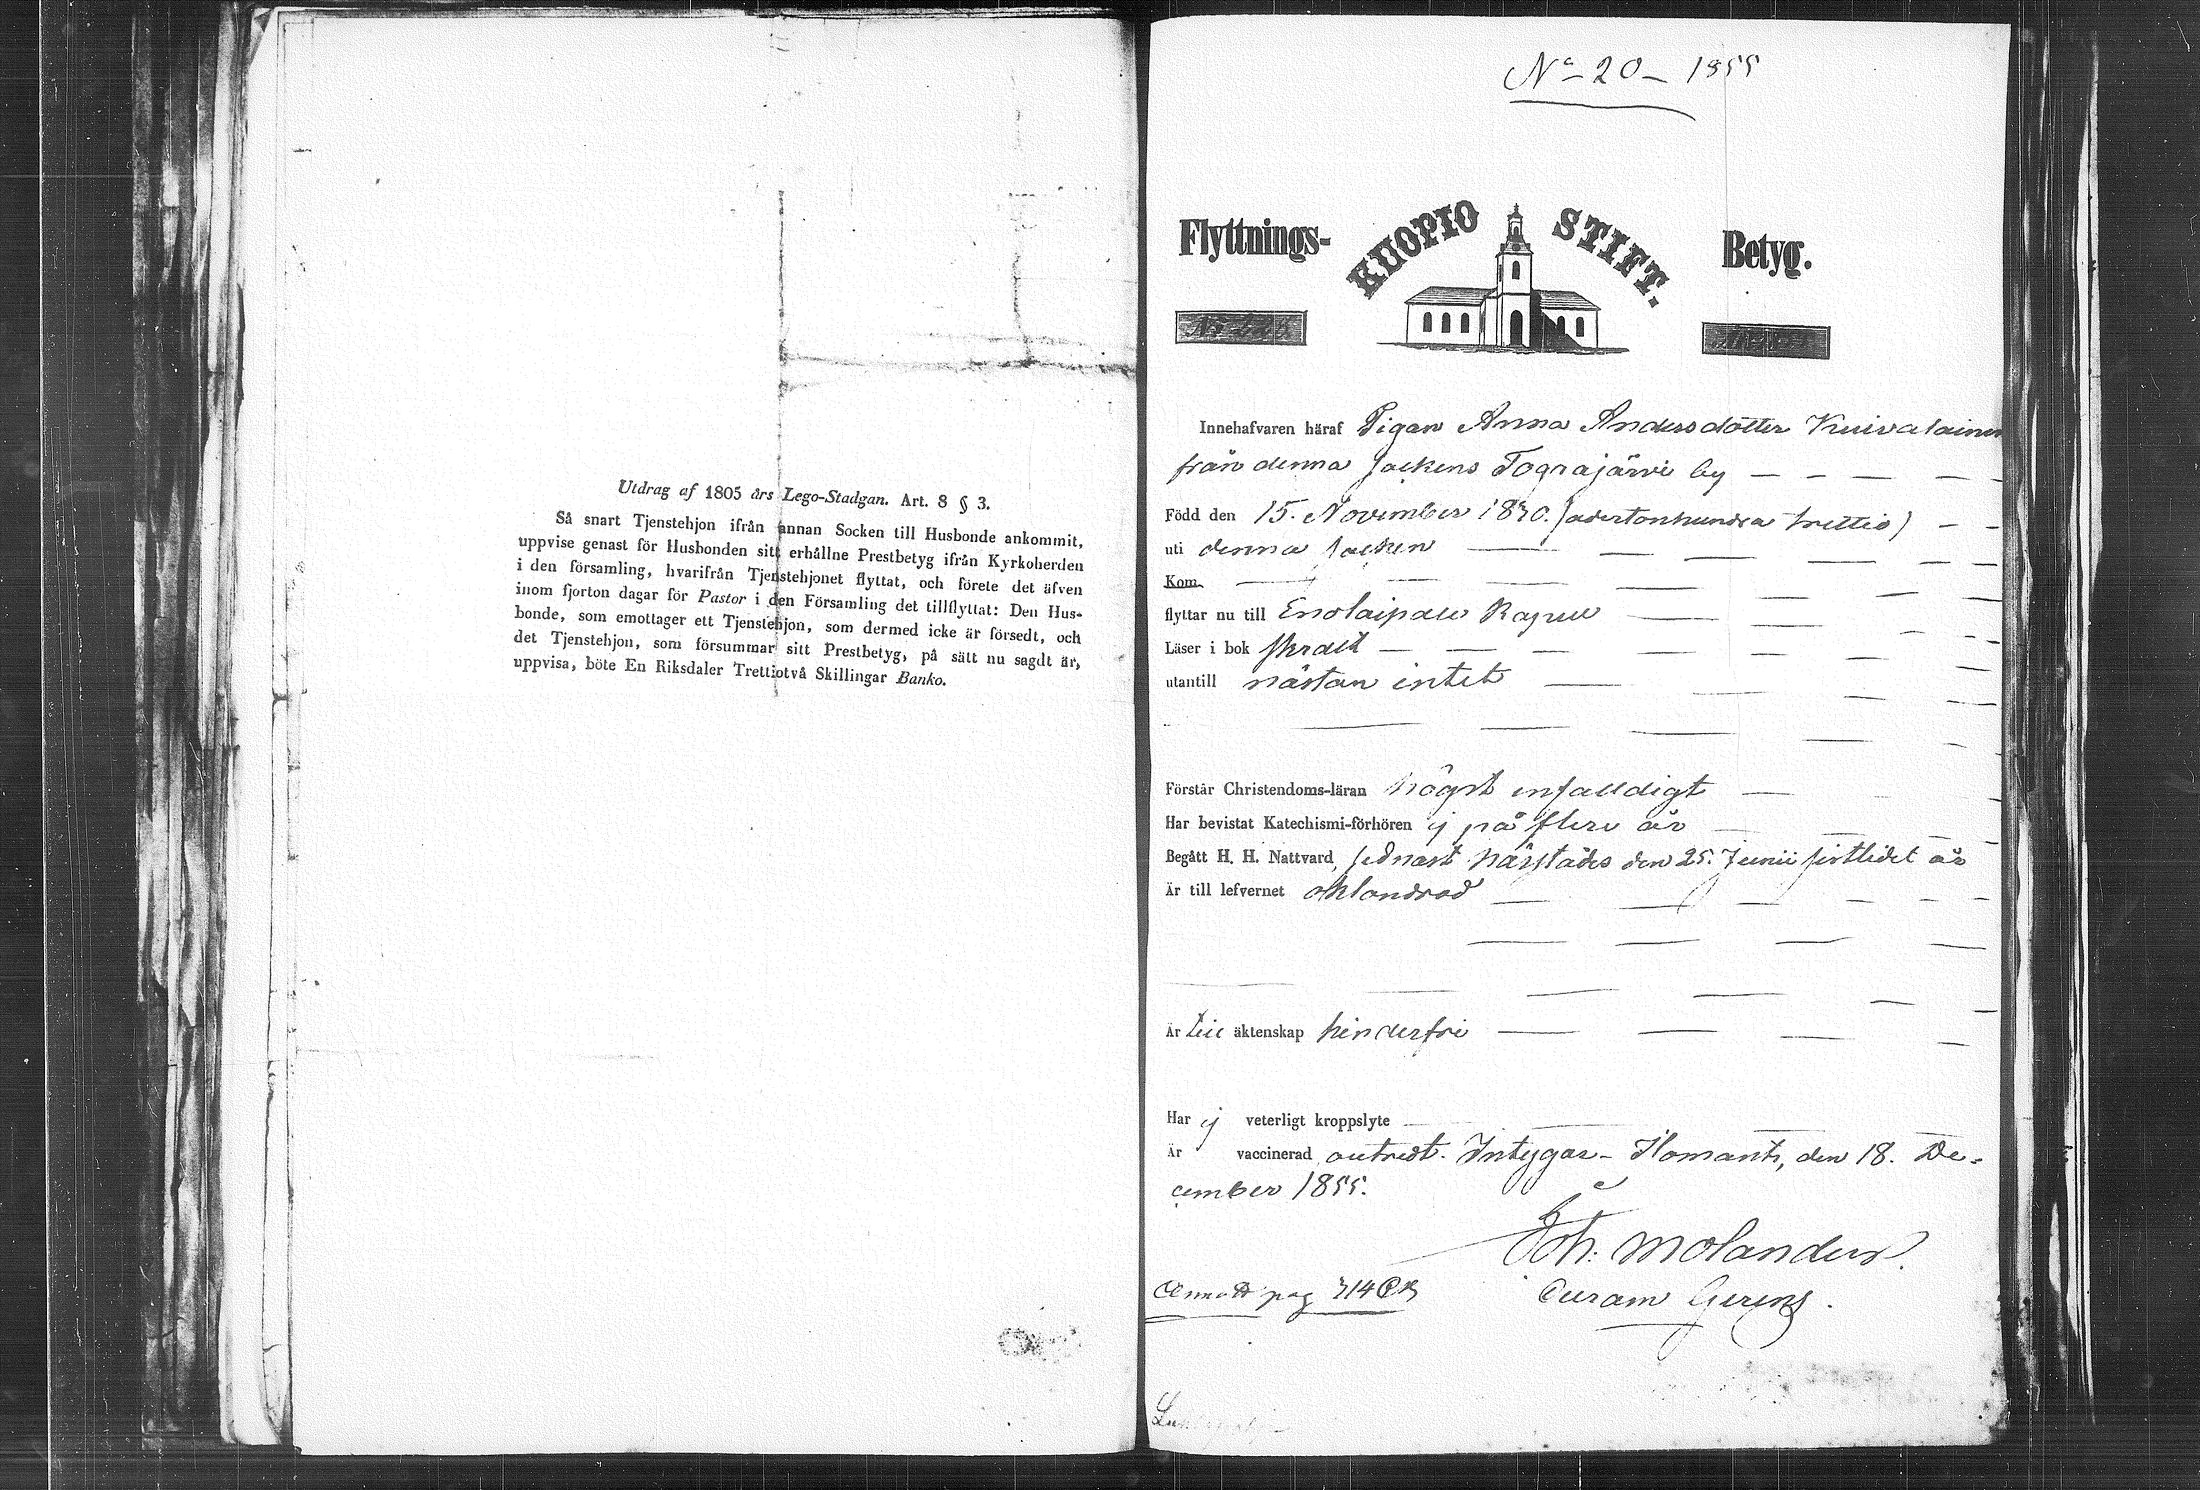 Utdrag af 1805 års Lego-Stadgan. Art. 8 § 3.
Så snart Tjenstehjon ifrån annan Socken till Husbonde ankommit,
uppvise genast för Husbonden sitt erhållne Prestbetyg ifrån Kyrkoherden
i den församling, hvarifrån Tjenstehjonet flyttat, och förete det äfven
inom fjorton dagar för Pastor i den Församling det tillflyttat: Den Hus-
bonde, som emottager ett Tjenstehjon, som dermed icke är försedt, och
det Tjenstehjon, som försummar sitt Prestbetyg, på sätt nu sagdt är,
uppvisa, böte En Riksdaler Trettiotvå Skillingar Banko.
No 20 – 1855
Flyttnings- KUOPIO STIFT. Betyg.
Innehafvaren häraf Pigan Anna Andersdotter Kuivalainen
från denna Sockens Tograjärvi by
Född den 15. November 1830. (adertonhundra trettio)
uti denna Socken
Kom
flyttar nu till Enolaipale Kapell
Läser i bok svagt
utantill nästan intet
Förstår Christendoms-läran högst enfaldigt
Har bevistat Katechismi-förhören ej på flere år
Begått H. H. Nattvard, sednast härstädes den 25. Junii sistlidet år
Är till lefvernet oklandrad
Är till äktenskap hinderfri
Har ej veterligt kroppslyte
Är vaccinerad Intygar – Ilomants, den 18. De-
cember 1855.
Joh: Molander.
Curam Gerens.
Annott pag 314